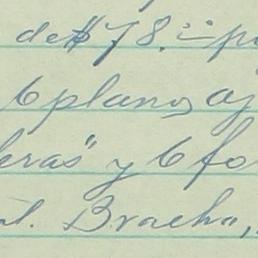 de $78.= p
6 planos aj
leras" y 6 fo
al. Bracho,